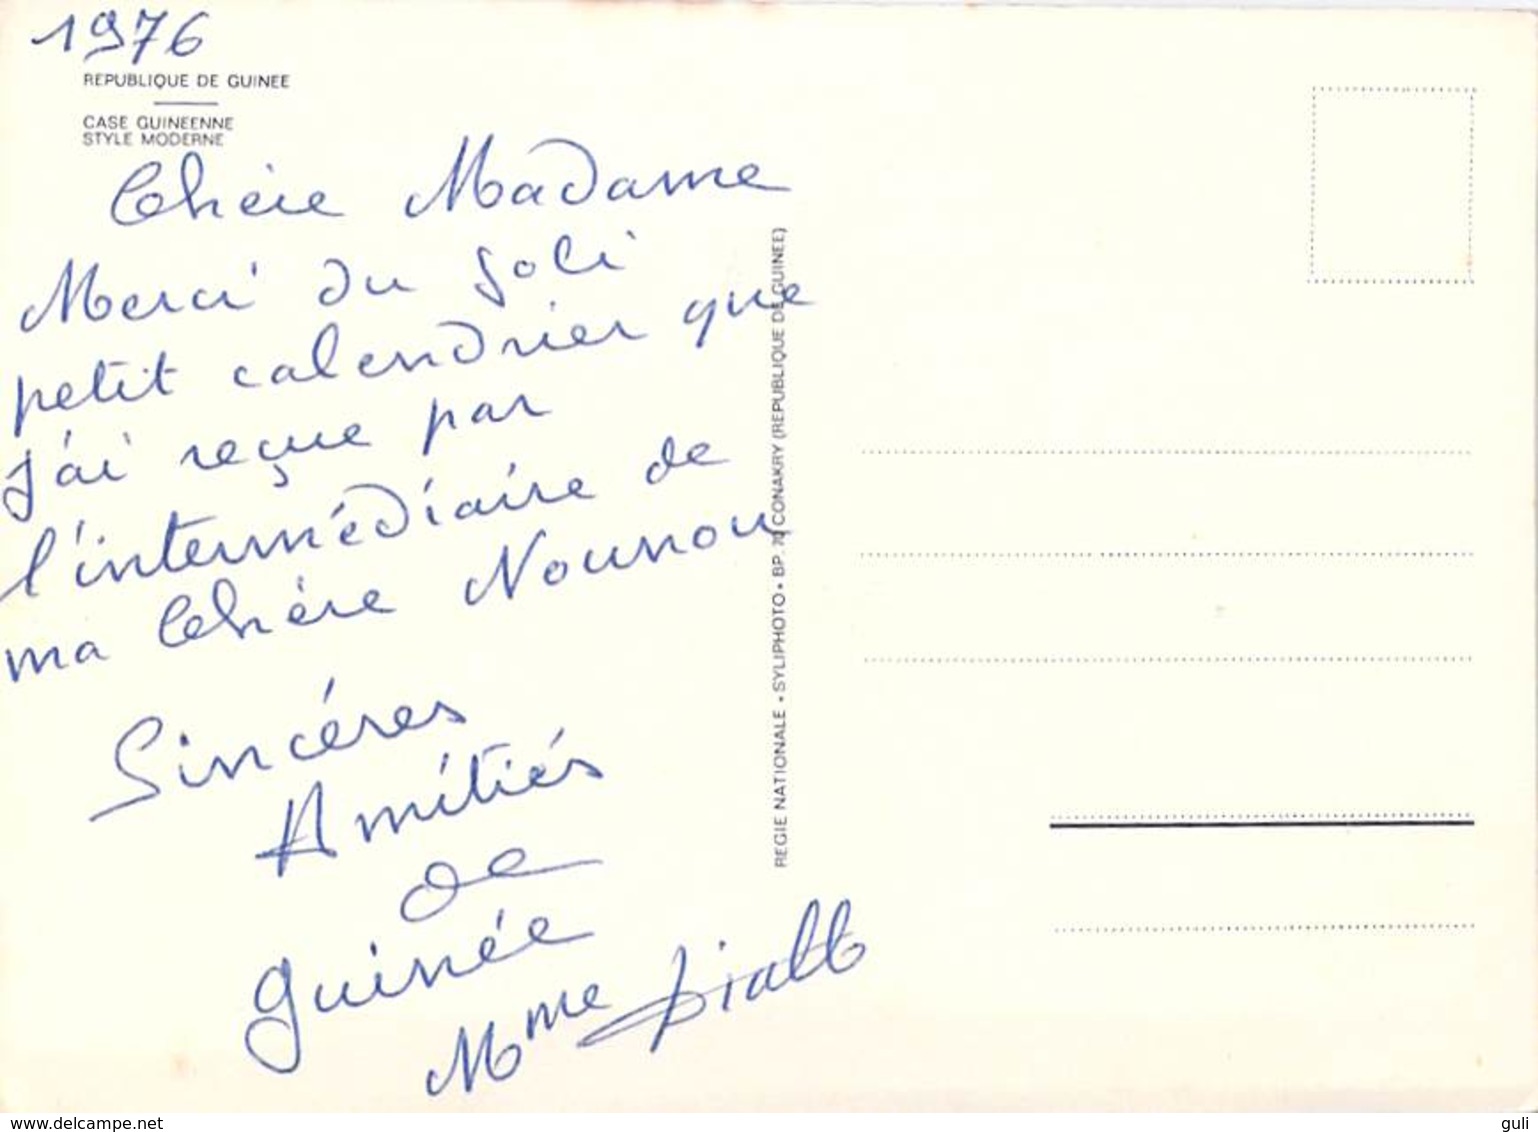 1976
REPUBLIQUE DE GUINEE
CASE GUINEENNE
STYLE MODERNE
Chère Madame
Merci du Joli
petit calendrier que
j'ai reçue par
l'intermédiaire de
ma Chère Nounou
Sincéres
Amitiés
de
Guinée
Mme Diallo
REGIE NATIONALE • SYLIPHOTO • BP. 70 CONAKRY (REPUBLIQUE DE GUINEE)
www.delcampe.net
guli